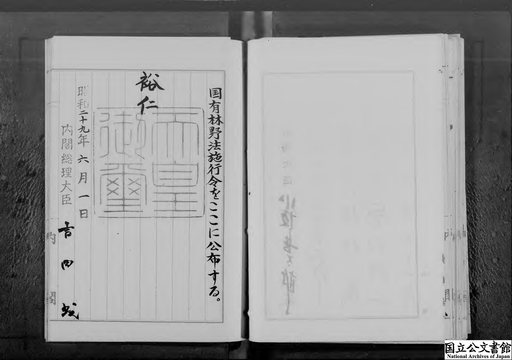 国有林野法施行令をここに公布する。
裕仁
天皇御璽
昭和二十九年六月一日
内閣総理大臣 吉田茂
国立公文書館
National Archives of Japan